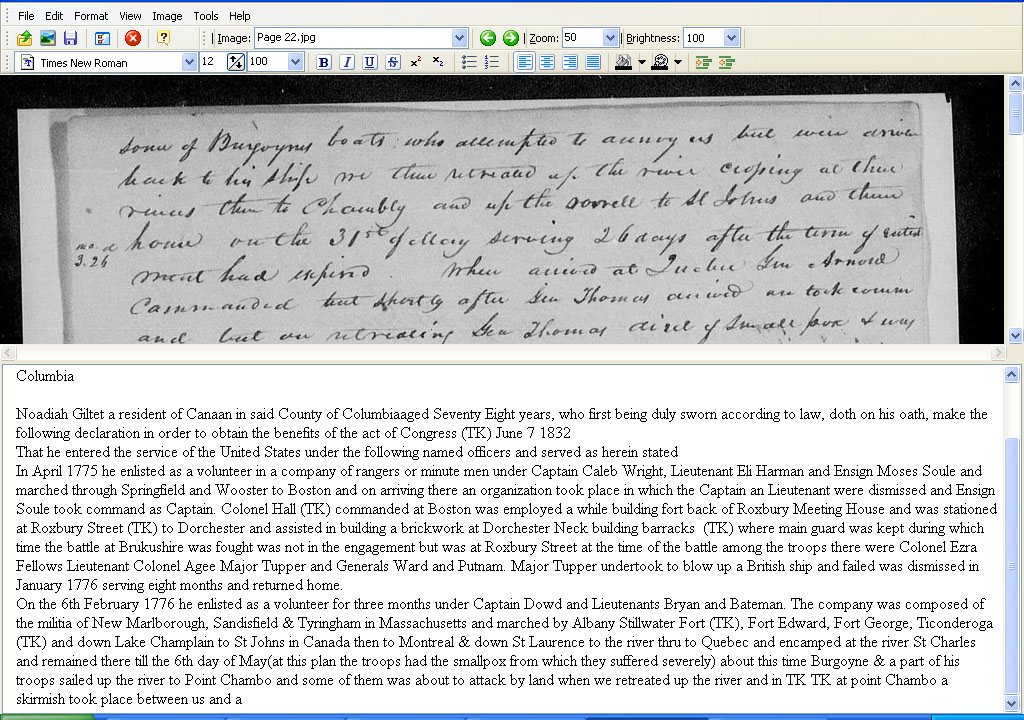 File Edit Format View Image Tools Help
Image: Page 22.jpg Zoom: 50 Brightness: 100
Times New Roman 12 100 B I U S x² x₂
some of Burgoynes boats who attempted to annoy us but were driven
back to his ship we then retreated up the river crossing at three
rivers then to Chambly and up the sorrell to St Johns and then
mo. d
3.26
home on the 31st of May serving 26 days after the term of enlist
ment had expired When arrived at Quebec Gen Arnold
Commanded but shortly after Gen Thomas arrived an took comm
and but on retreating Gen Thomas died of Small pox & was
Columbia
Noadiah Giltet a resident of Canaan in said County of Columbiaaged Seventy Eight years, who first being duly sworn according to law, doth on his oath, make the
following declaration in order to obtain the benefits of the act of Congress (TK) June 7 1832
That he entered the service of the United States under the following named officers and served as herein stated
In April 1775 he enlisted as a volunteer in a company of rangers or minute men under Captain Caleb Wright, Lieutenant Eli Harman and Ensign Moses Soule and
marched through Springfield and Wooster to Boston and on arriving there an organization took place in which the Captain an Lieutenant were dismissed and Ensign
Soule took command as Captain. Colonel Hall (TK) commanded at Boston was employed a while building fort back of Roxbury Meeting House and was stationed
at Roxbury Street (TK) to Dorchester and assisted in building a brickwork at Dorchester Neck building barracks (TK) where main guard was kept during which
time the battle at Brukushire was fought was not in the engagement but was at Roxbury Street at the time of the battle among the troops there were Colonel Ezra
Fellows Lieutenant Colonel Agee Major Tupper and Generals Ward and Putnam. Major Tupper undertook to blow up a British ship and failed was dismissed in
January 1776 serving eight months and returned home.
On the 6th February 1776 he enlisted as a volunteer for three months under Captain Dowd and Lieutenants Bryan and Bateman. The company was composed of
the militia of New Marlborough, Sandisfield & Tyringham in Massachusetts and marched by Albany Stillwater Fort (TK), Fort Edward, Fort George, Ticonderoga
(TK) and down Lake Champlain to St Johns in Canada then to Montreal & down St Laurence to the river thru to Quebec and encamped at the river St Charles
and remained there till the 6th day of May(at this plan the troops had the smallpox from which they suffered severely) about this time Burgoyne & a part of his
troops sailed up the river to Point Chambo and some of them was about to attack by land when we retreated up the river and in TK TK at point Chambo a
skirmish took place between us and a